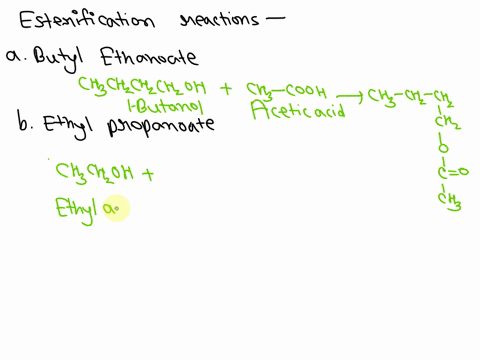 Esterification reactions —
a. Butyl Ethanoate
CH3CH2CH2CH2OH + CH3-COOH → CH3-CH2-CH2
1-Butanol Acetic acid
CH2
O
C=O
CH3
b. Ethyl propanoate
CH3CH2OH +
Ethyl a